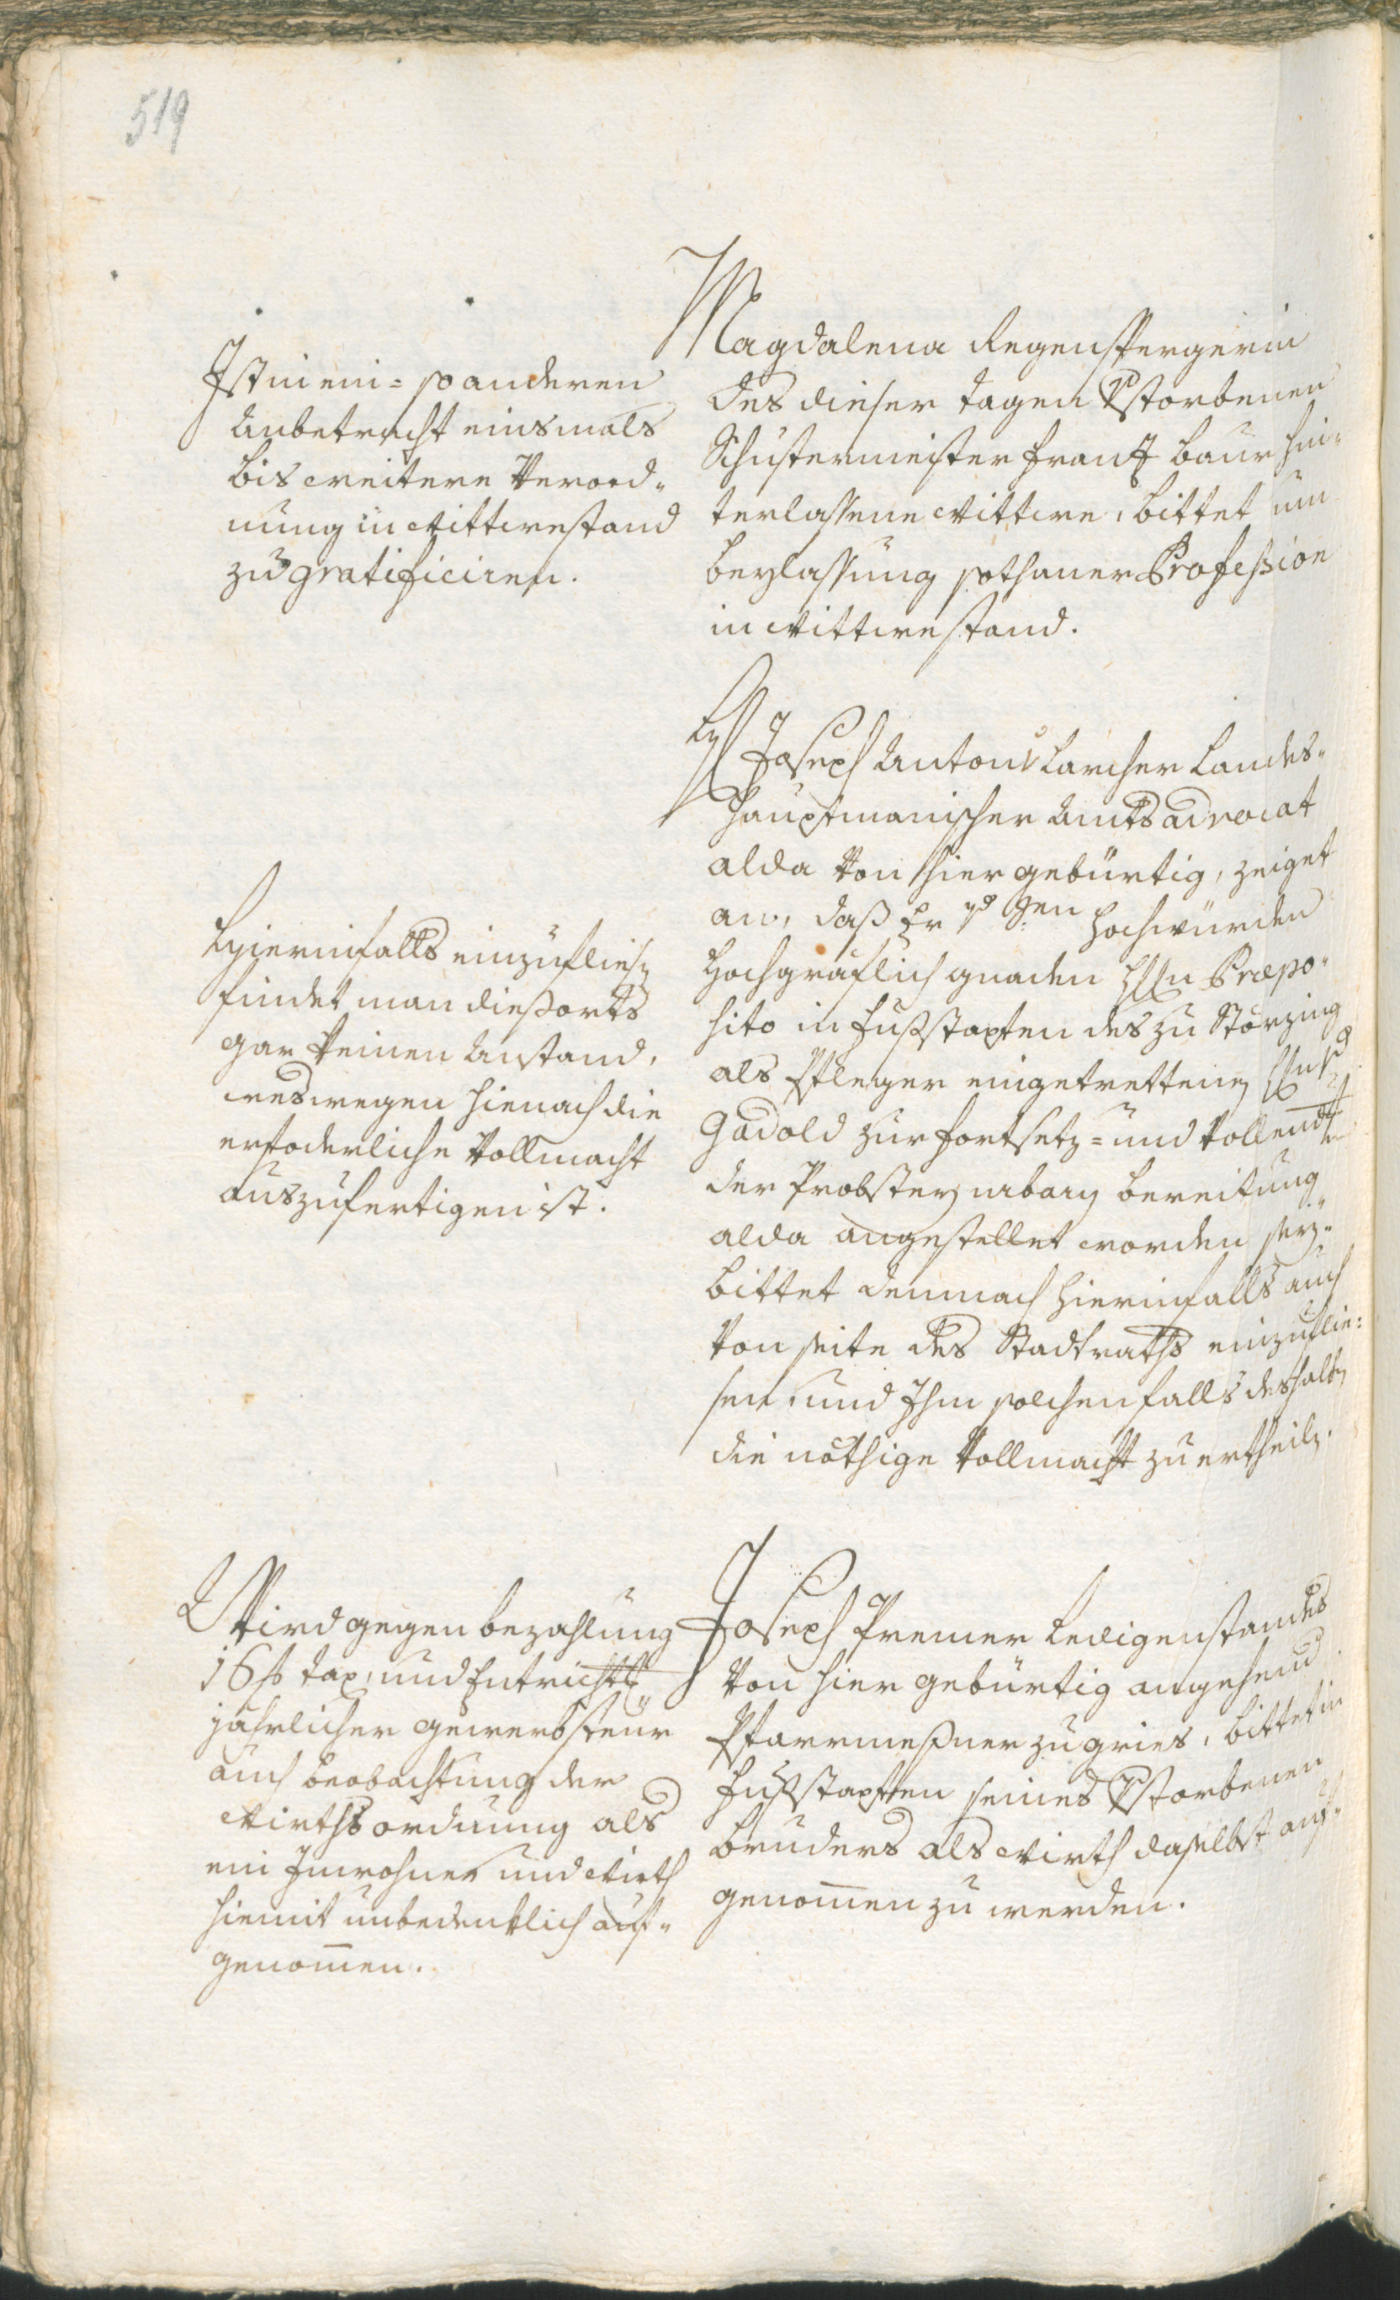 519
Magdalena Regenspergerin
des dieser tagen Vstorbenen
Schustermeister Frantz Baur hin¬
terlassene Wittwe, bittet um
beylassung sothaner Profession
in Wittwestand.
Ist in ein= so anderen
Anbetracht einsmals
bis weitere Verord¬
nung in Wittwestand
zu gratificiren.
Hr Joseph Anton Larcher Landes¬
hauptmanischer Amts advocat
alda von hier gebürtig, zeiget
an, daß Er von Hochwürden
Hochgräflich gnaden Hrn Præpo¬
sito in Fußstapfen des zu Störzing
als Pfleger eingetrettenen Hrn
Gadold zur fortsetz= und Vollend
der Probstey urbary bereitung
alda angestellet worden sey¬
bittet demnach hierinfalls auch
von seite des Stadtraths einzuflie¬
ssen und Ihm solchenfalls deshalben
die nöthige Vollmacht zu ertheilen.
Hierinfalls einzufliessen
findet man diessorts
gar keinen Anstand,
weswegen hienach die
erfoderliche Vollmacht
auszufertigen ist.
Joseph Premer Ledigenstandes
von hier gebürtig angehend
Pfarrmeßner zu gries, bittet in
Fußstapfen seines Vstorbenen
Bruders als Wirth daselbst auf¬
genomen zu werden.
Wird gegen bezahlung
16 f tax, und Entricht
jährlicher gewerbsteur
auch beobachtung der
Wirths ordnung als
ein Inwohner und Wirth
hiemit unbedenklich auf¬
genomen.